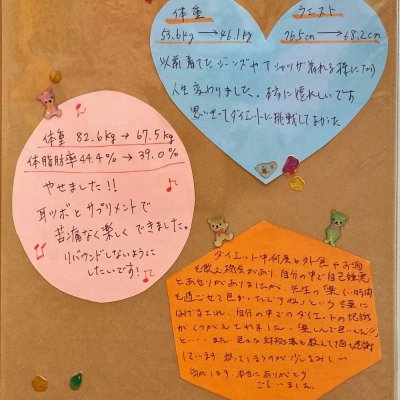 体重 ウエスト
53.6kg→46.1kg 76.5cm→68.2cm
以前着てたジーンズやTシャツが着れる様になり
人生変わりました。本当に嬉しいです
思いきってダイエットに挑戦してよかた
体重 82.6kg→67.5kg
体脂肪率44.4%→39.0%
やせました!!
耳ツボとサプリメントで
苦痛なく楽しくできました。
リバウンドしないように
したいです!
ダイエット中何度か外食やお酒
を飲む機会があり、自分の中で自己嫌悪
とあせりがありましたが、先生の「楽しい時間
を過ごせて良かったですね」という言葉に
はげまされ、自分の中でのダイエットの意識
がくつがえされました。
また、色々な対処法を教えて頂き感謝
しています。
本当にありがとう
ございました。